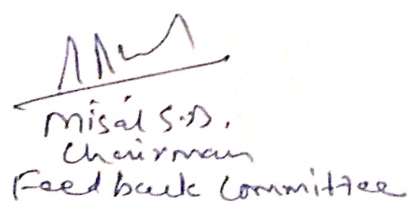 Misal S.D.
Chairman
Feedback Committee